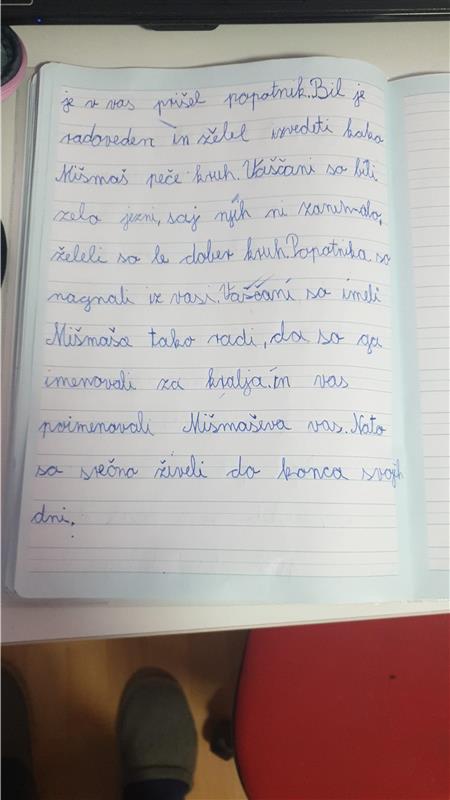 je v vas prišel popotnik. Bil je
radoveden in želel izvedeti kako
Mišmaš peče kruh. Vaščani so bili
zelo jezni, saj njih ni zanimalo,
želeli so le dober kruh. Popotnika so
nagnali iz vasi. Vaščani so imeli
Mišmaša tako radi, da so ga
imenovali za kralja in vas
poimenovali Mišmaševa vas. Nato
so srečno živeli do konca svojih
dni.